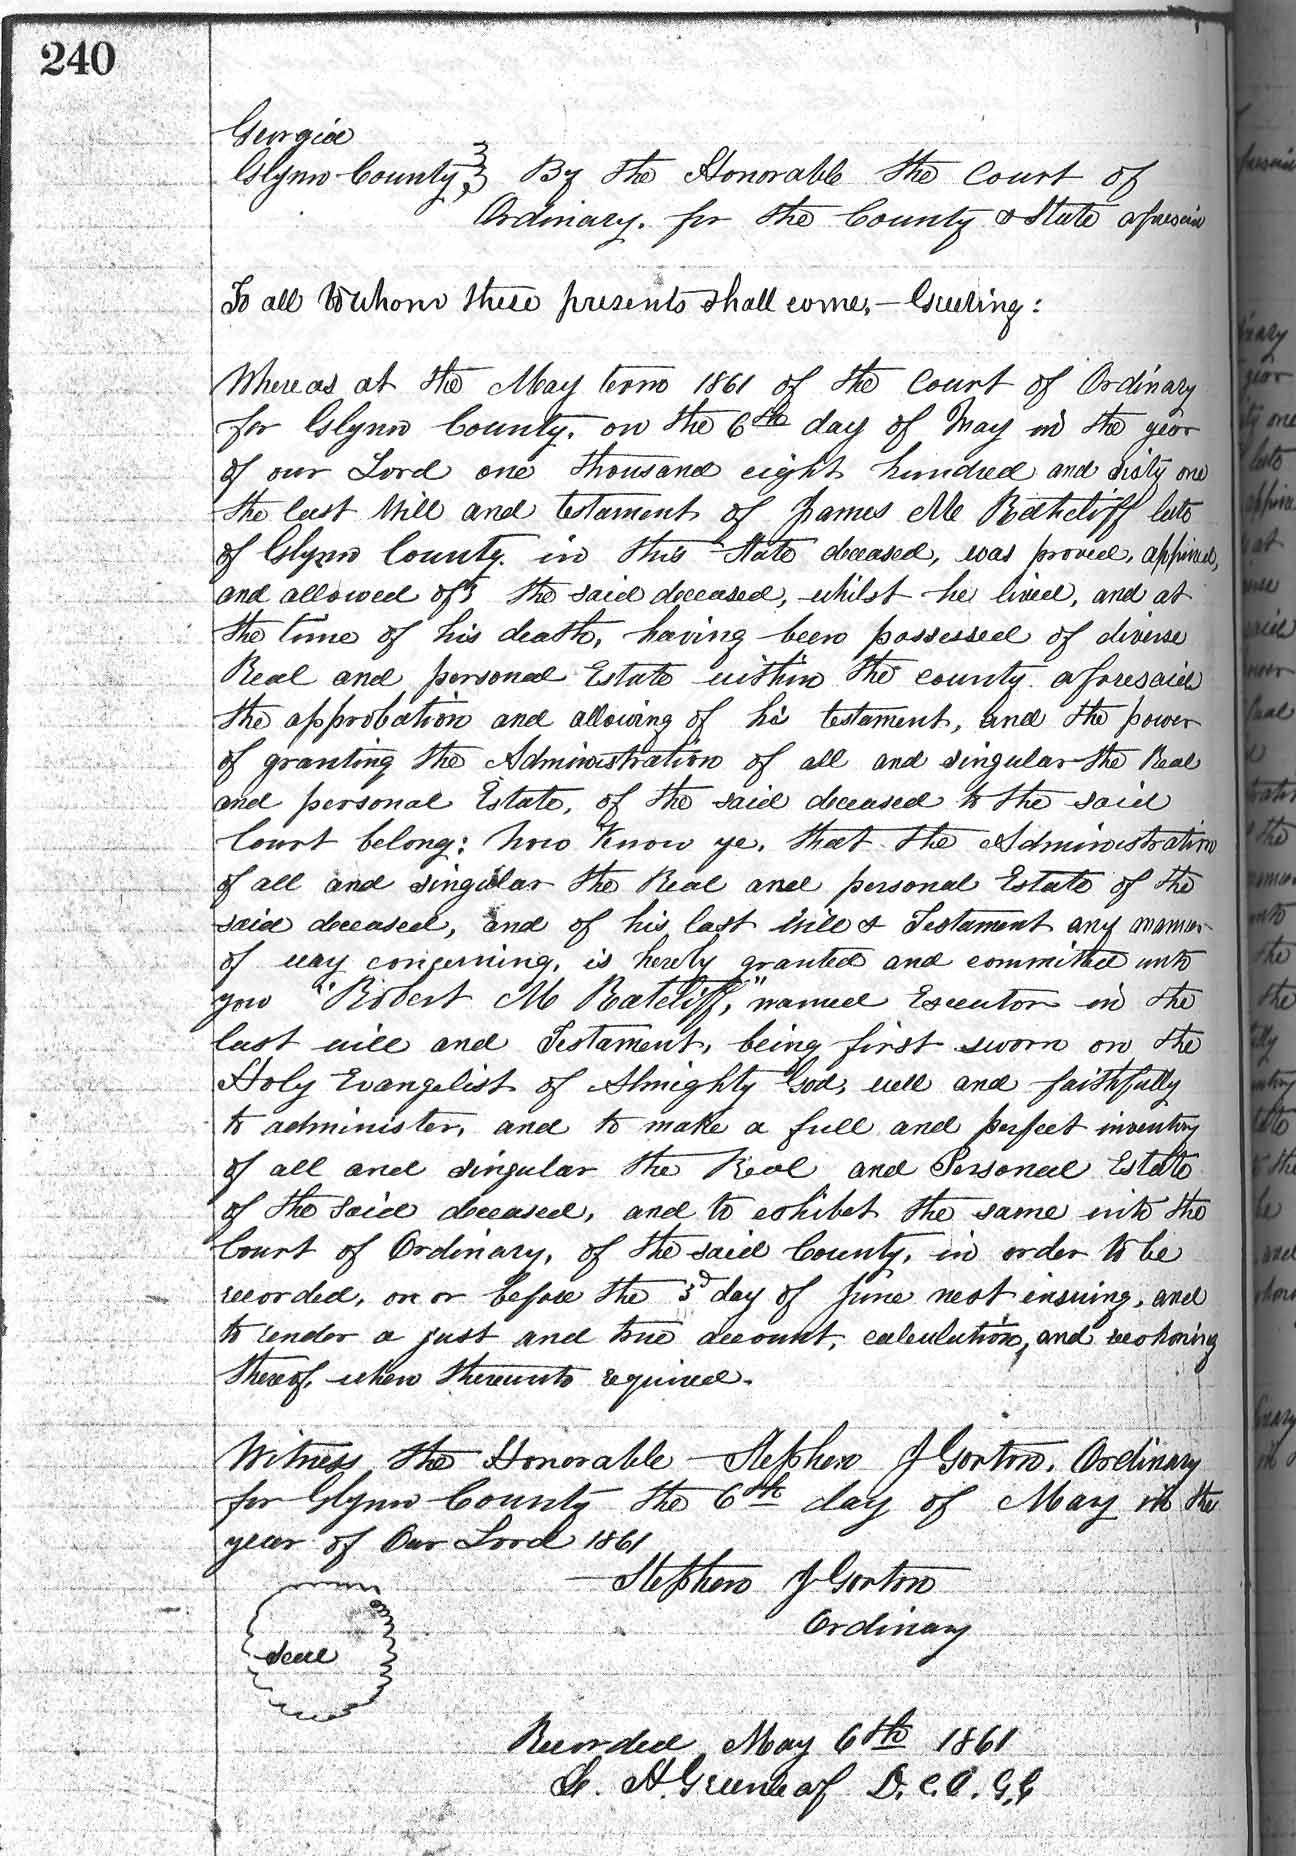 240
Georgia
Glynn County, } By the Honorable the Court of
Ordinary. for the County & State aforesaid
To all to whom these presents shall come, – Greeting:
Whereas at the May term 1861 of the Court of Ordinary
for Glynn County. on the 6th day of May in the year
of our Lord one thousand eight hundred and sixty one
the last Will and testament of James M Ratcliff late
of Glynn County. in this State deceased, was proved, approved,
and allowed of; the said deceased, whilst he lived, and at
the time of his death, having been possessed of diverse
Real and personal Estate within the county aforesaid
the approbation and allowing of his testament, and the power
of granting the Administration of all and singular the Real
and personal Estate, of the said deceased to the said
Court belong: now Know ye, that the Administration
of all and singular the Real and personal Estate of the
said deceased, and of his last Will & Testament any manner
of way concerning, is hereby granted and committed unto
you "Robert M Ratcliff," named Executor in the
last will and Testament, being first sworn on the
Holy Evangelist of Almighty God, well and faithfully
to administer, and to make a full and perfect inventory
of all and singular the Real and Personal Estate
of the said deceased, and to exhibet the same into the
Court of Ordinary, of the said County, in order to be
recorded, on or before the 3d day of June next insuing, and
to render a just and true account, calculation, and reckoning
thereof, when thereunto required.
Witness, the Honorable Stephen J Gorton, Ordinary
for Glynn County the 6th day of May in the
year of Our Lord 1861
Stephen J Gorton
Ordinary
Seal
Recorded May 6th 1861
H. Greenleaf D. C. O. G. C